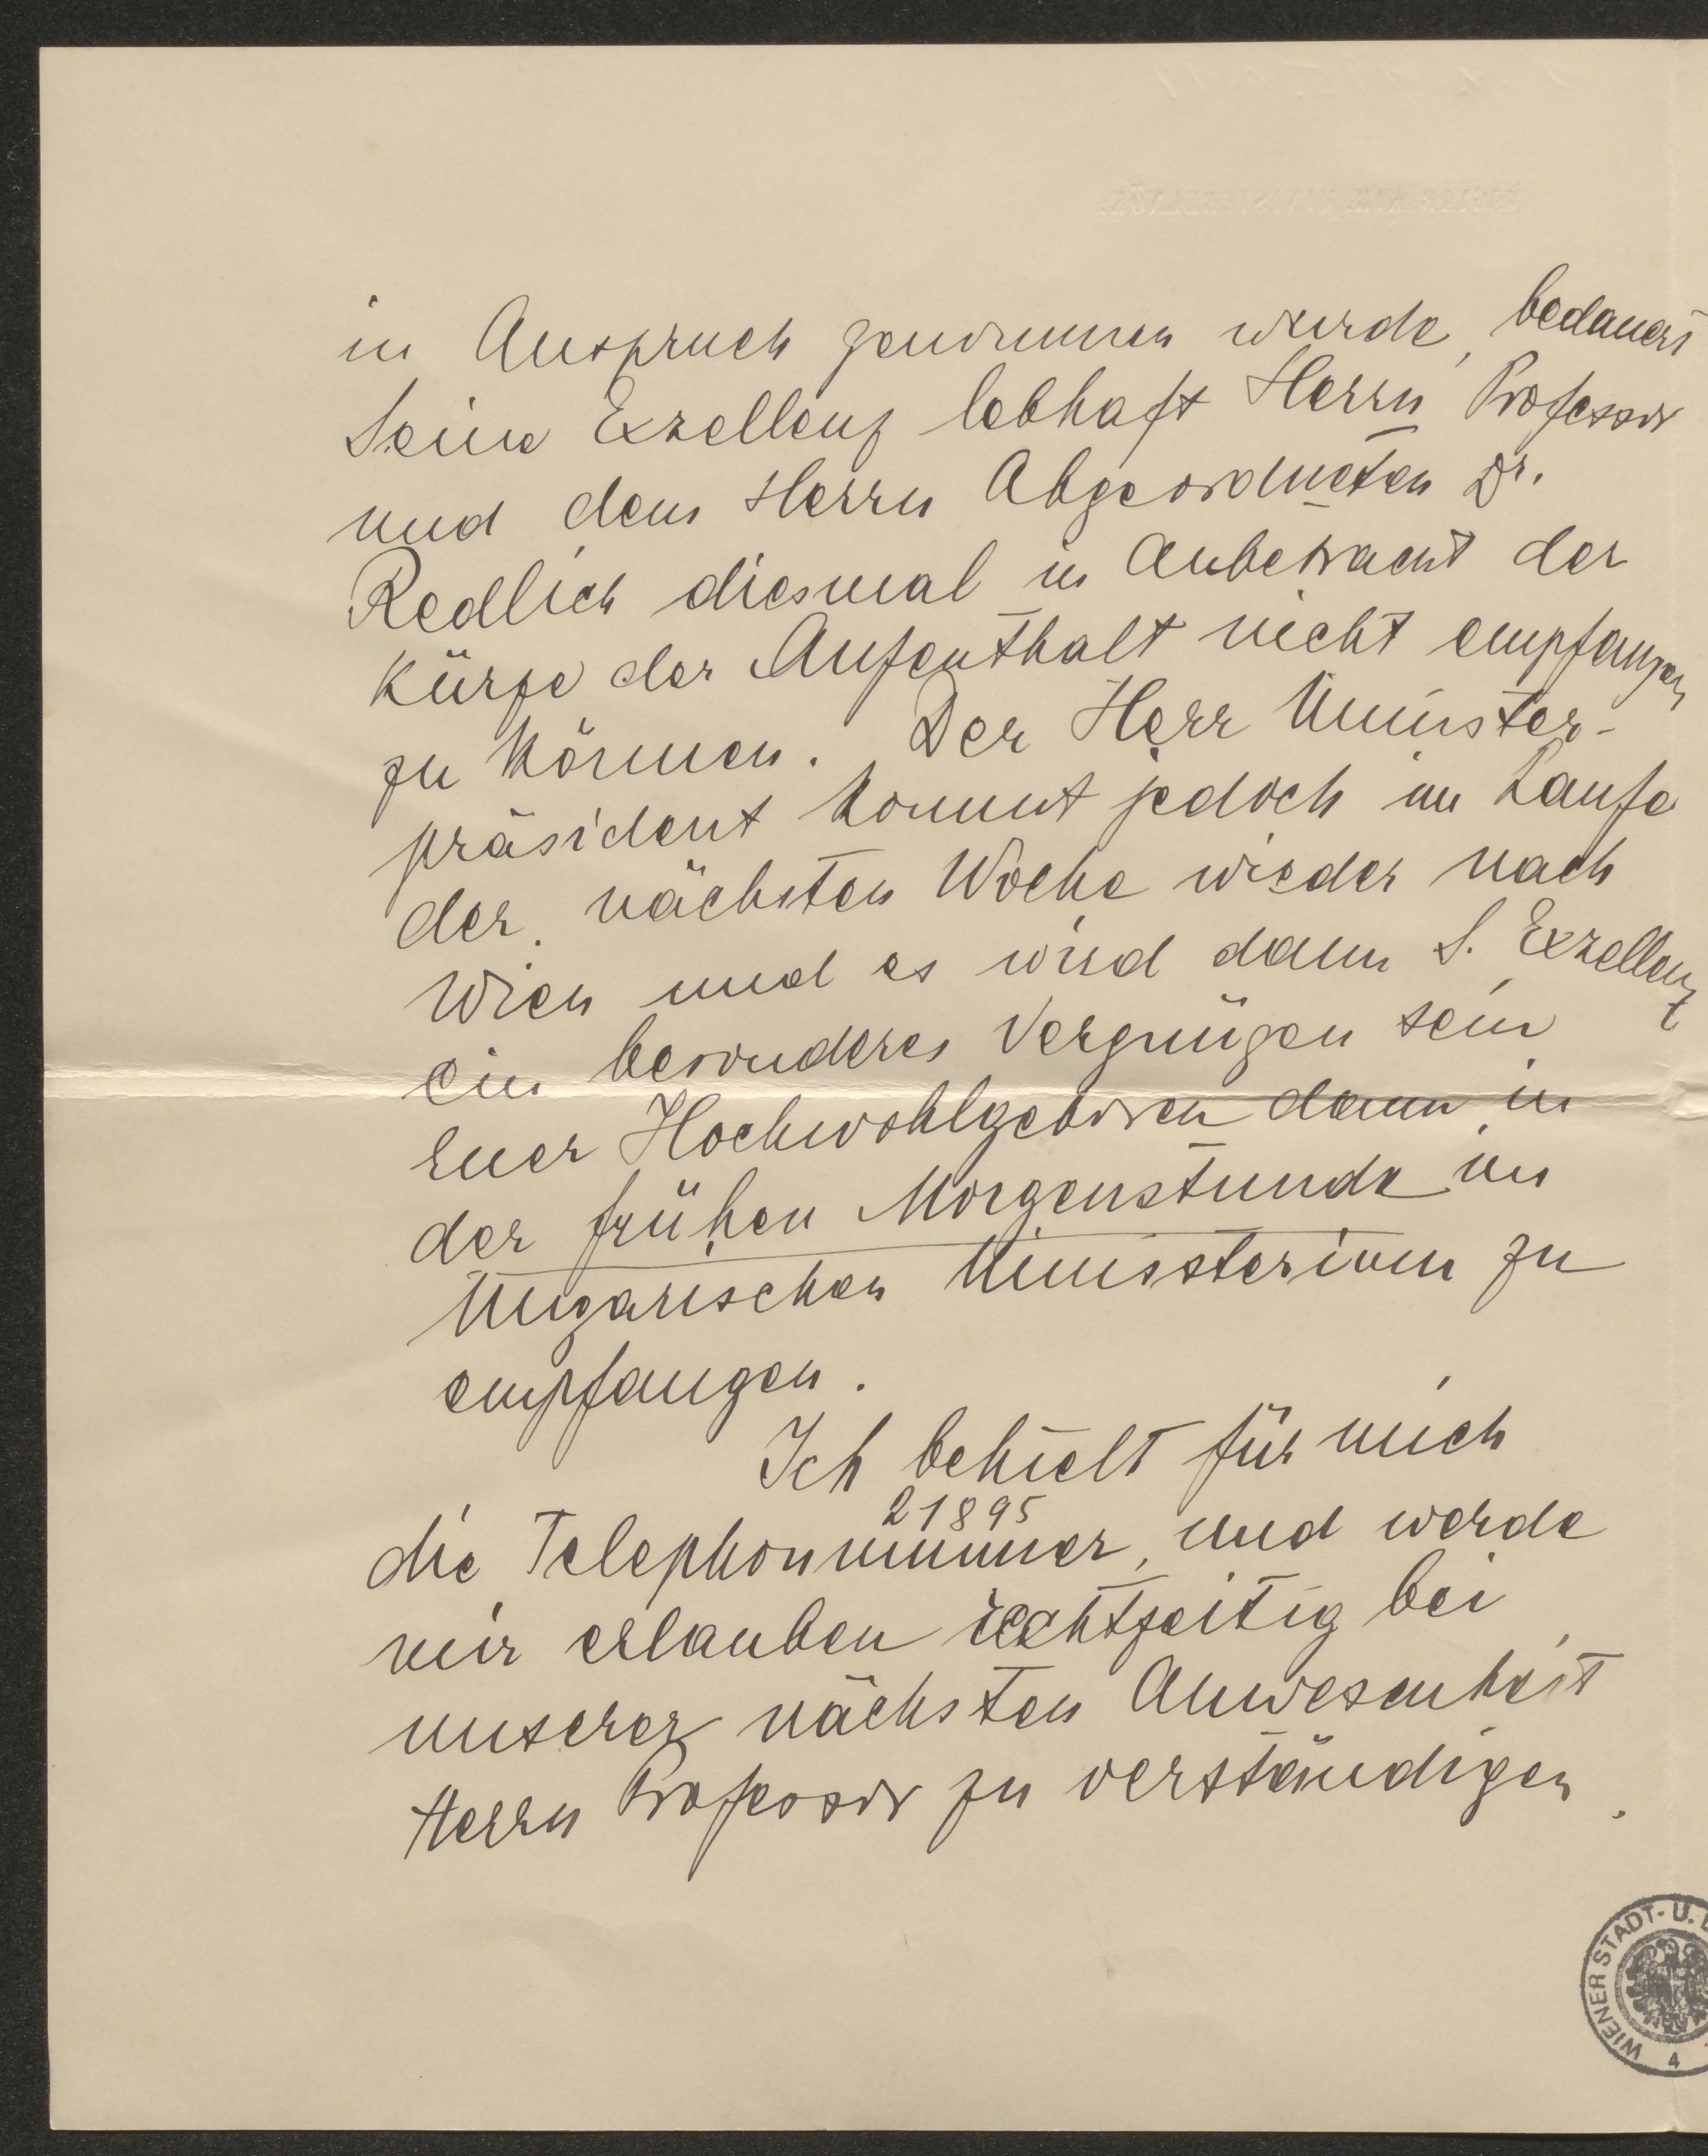 in Anspruch genommen wurde, bedauert
Seine Exzellenz lebhaft Herrn Professor
und dem Herrn Abgeordneten Dr.
Redlich diesmal in Anbetracht der
Kürze der Aufenthalt nicht empfangen
zu können. Der Herr Minister-
präsident kommt jedoch im Laufe
der nächsten Woche wieder nach
Wien und es wird dann S. Exzellenz
ein besonderes Vergnügen sein
Euer Hochwohlgeboren dann in
der frühen Morgenstunde im
Ungarischen Ministerium zu
empfangen.
Ich behielt für mich
21895
die Telephonnummer, und werde
mir erlauben rechtzeitig bei
unserer nächsten Anwesenheit
Herrn Professor zu verständigen.
WIENER STADT- U.
4